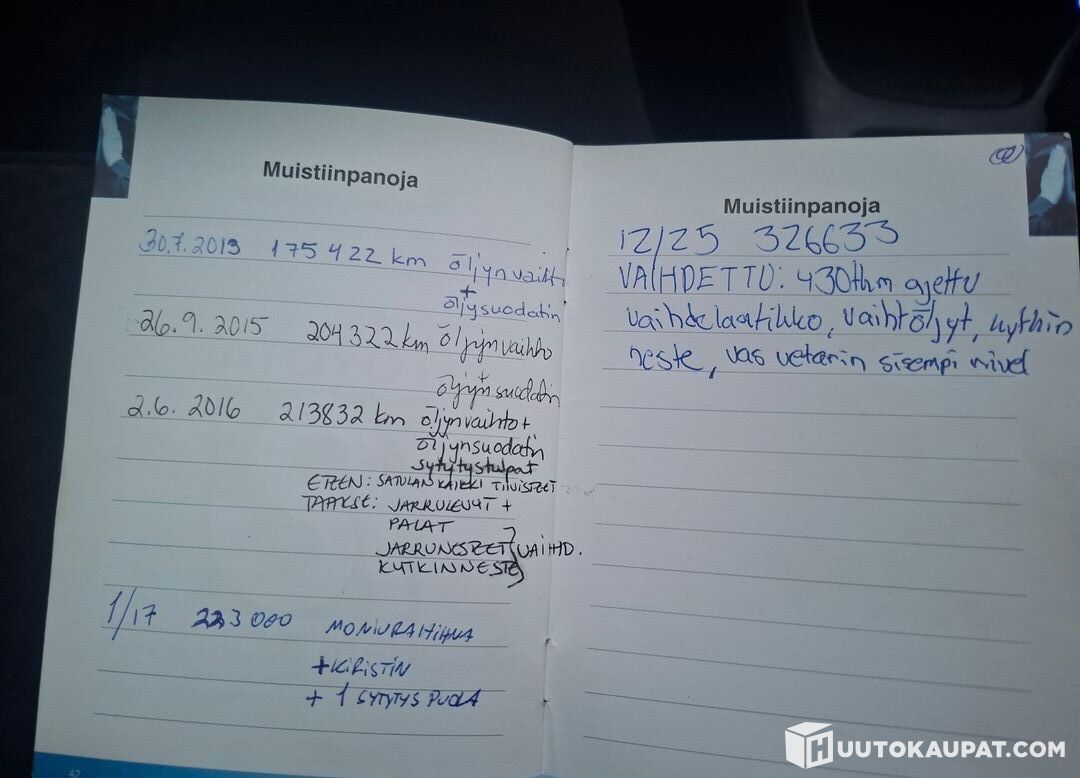 Muistiinpanoja
30.7.2013 175422 km öljynvaihto
+
öljysuodatin
26.9.2015 204322 km öljynvaihto
+
öljynsuodatin
2.6. 2016 213832 km öljynvaihto+
öljynsuodatin
sytytystulpat
ETEEN: SATULAN KAIKKI TIIVISTEET
TAAKSE: JARRULEVYT +
PALAT
JARRUNESTEET } VAIHD.
KYTKINNESTE
1/17 223000 MONIURAHIHNA
+KIRISTIN
+ 1 SYTYTYS PUOLA
42
Muistiinpanoja
12/25 326633
VAIHDETTU: 430thm ajettu
vaihdelaatikko, vaihtöljyt, kytkin
neste, vas vetarin sisempi nivel
HUUTOKAUPAT.COM